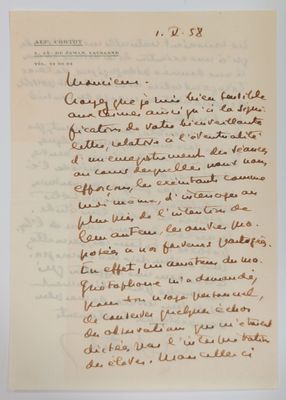 ALF. CORTOT
1. II. 58
Monsieur.
Croyez que je suis bien sensible
aux termes ainsi qu'à la signi-
fication de votre bienveillante
lettre, relative à l'éventualité
d'un enregistrement des séances
au cours desquelles nous nous
efforçons, les exécutants comme
moi même, d'interroger au
plus près de l'intention de
leur auteur, les œuvres pro-
posées à nos ferveurs partagées.
En effet, un amateur du ma-
gnétophone m'a demandé,
pour son usage personnel,
de conserver quelques échos
des observations qui m'étaient
dictées par l'interprétation
des élèves. Mais celles ci